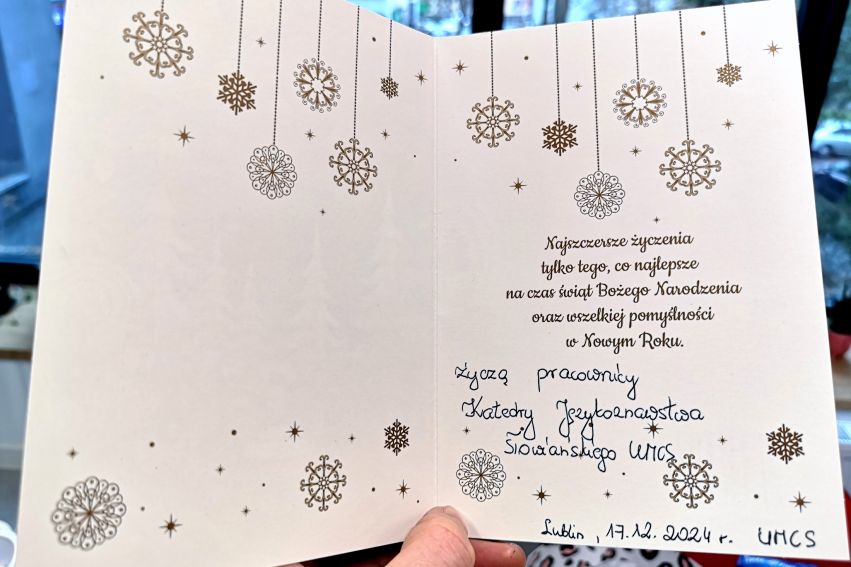 Najszczersze życzenia
tylko tego, co najlepsze
na czas świąt Bożego Narodzenia
oraz wszelkiej pomyślności
w Nowym Roku.
życzą pracownicy
Katedry Językoznawstwa
Słowiańskiego UMCS
Lublin, 17.12.2024 r. UMCS